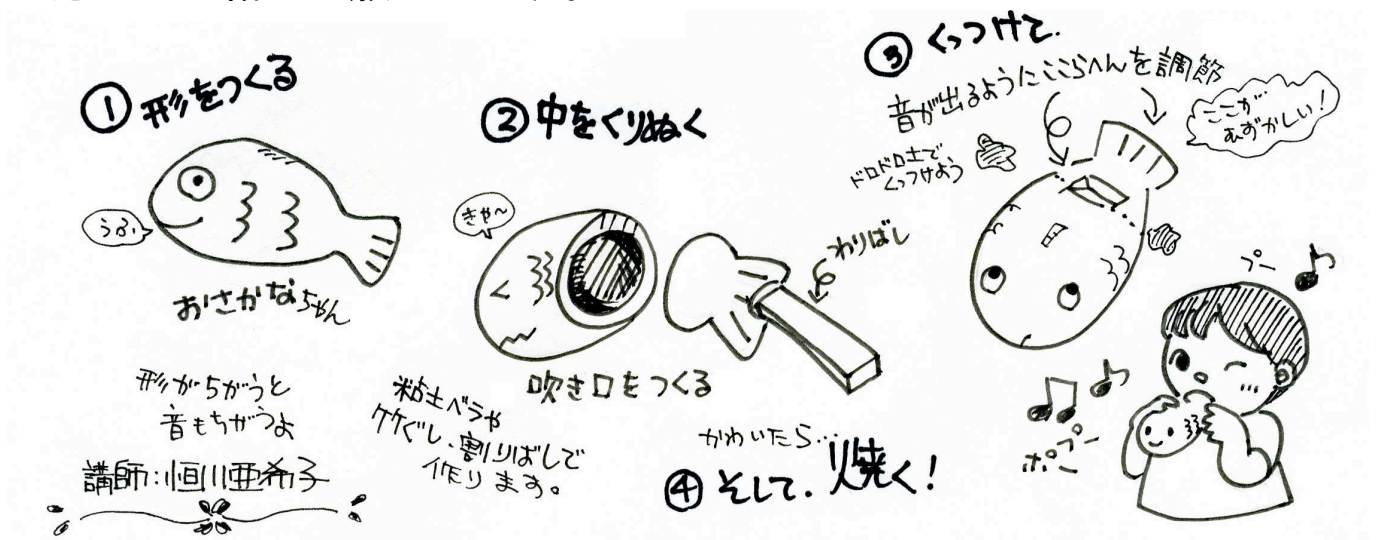 ① 形をつくる
うふ
おさかなちゃん
形がちがうと
音もちがうよ
講師:恒川亜希子
② 中をくりぬく
きゃ〜
わりばし
吹き口をつくる
粘土ベラや
竹ぐし、割りばしで
作ります。
③ くっつけて、
音が出るようにここらへんを調節
ここが…
むずかしい!
ドロドロ土で
くっつけよう
プー
ポープー
かわいたら…
④ そして、焼く!